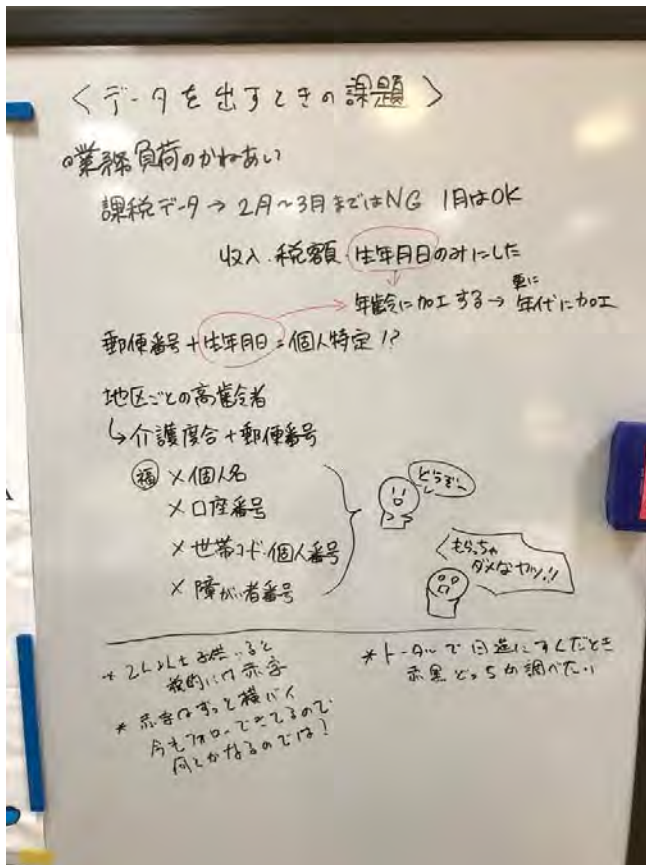 <データを出すときの課題>
業務負荷のかねあい
課税データ→2月~3月まではNG 1月はOK
収入・税額・生年月日のみにした
年齢に加工する→更に年代に加工
郵便番号+生年月日=個人特定!?
地区ごとの高齢者
↳介護度合+郵便番号
福 ×個人名
×口座番号
×世帯コード・個人番号
×障がい者番号
どうぞ〜
もらっちゃ
ダメなヤツ!!
*2人以上子供いると
税的には赤字
*赤字はずっと横バイ
今もフォローできてるので
何とかなるのでは!
*トータルで日進にすんだとき
赤黒どっちか調べたい